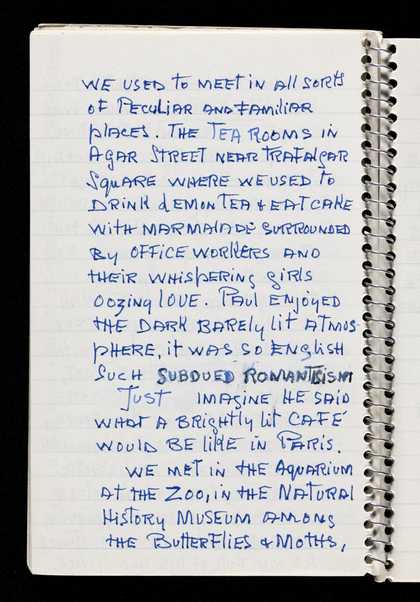 WE USED to MEET IN All SORtS
OF PECUliAR AND FAMiliAR
PlACES. THE TEA ROOMS IN
AGAR STREET NEAR TRAFAlGAR
SQUARE WHERE WE USED to
DRINK lEMON TEA & EAT CAKE
WITH MARMAlADE SURROUNDED
By OFFICE WORKERS AND
THEIR WHISPERING GIRlS
OOZING lOVE. PAUl ENJOYED
THE DARK BARElY lit ATMOS-
PHERE, it WAS SO ENGliSH
SUCH SUBDUED ROMANTIISM
JUST IMAGINE HE SAID
WHAT A BRIGHTlY lit CAFÉ
WOUlD BE liKE IN PARIS.
WE MET IN THE AQUARIUM
AT THE ZOO, IN THE NATURAl
HISTORY MUSEUM AMONG
THE BUTTERFLIES & MOTHS,